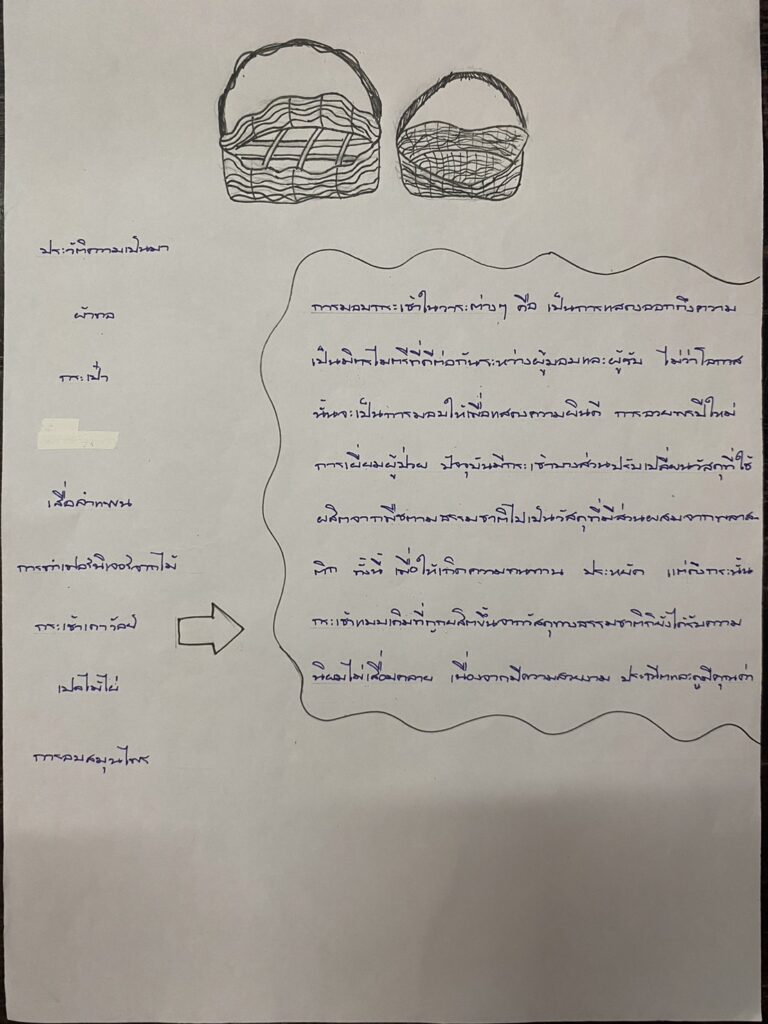 ประวัติความเป็นมา
ผ้าทอ
กระเป๋า
เสื่อลำแพน
การทำเฟอร์นิเจอร์จากไม้
กระเช้าเถาวัลย์
เปลไม้ไผ่
การอบสมุนไพร
การมอบกระเช้าในวาระต่างๆ คือ เป็นการแสดงออกถึงความ
เป็นมิตรไมตรีที่ดีต่อกันระหว่างผู้มอบและผู้รับ ไม่ว่าโอกาส
นั้นจะเป็นการมอบให้เพื่อแสดงความยินดี การอวยพรปีใหม่
การเยี่ยมผู้ป่วย ปัจจุบันมีกระเช้าบางส่วนปรับเปลี่ยนวัสดุที่ใช้
ผลิตจากพืชตามธรรมชาติไปเป็นวัสดุที่มีส่วนผสมจากพลาส
ติก ทั้งนี้ เพื่อให้เกิดความทนทาน ประหยัด แต่ถึงกระนั้น
กระเช้าแบบเดิมที่ถูกผลิตขึ้นจากวัสดุทางธรรมชาติก็ยังได้รับความ
นิยมไม่เสื่อมคลาย เนื่องจากมีความสวยงาม ประณีตและดูมีคุณค่า